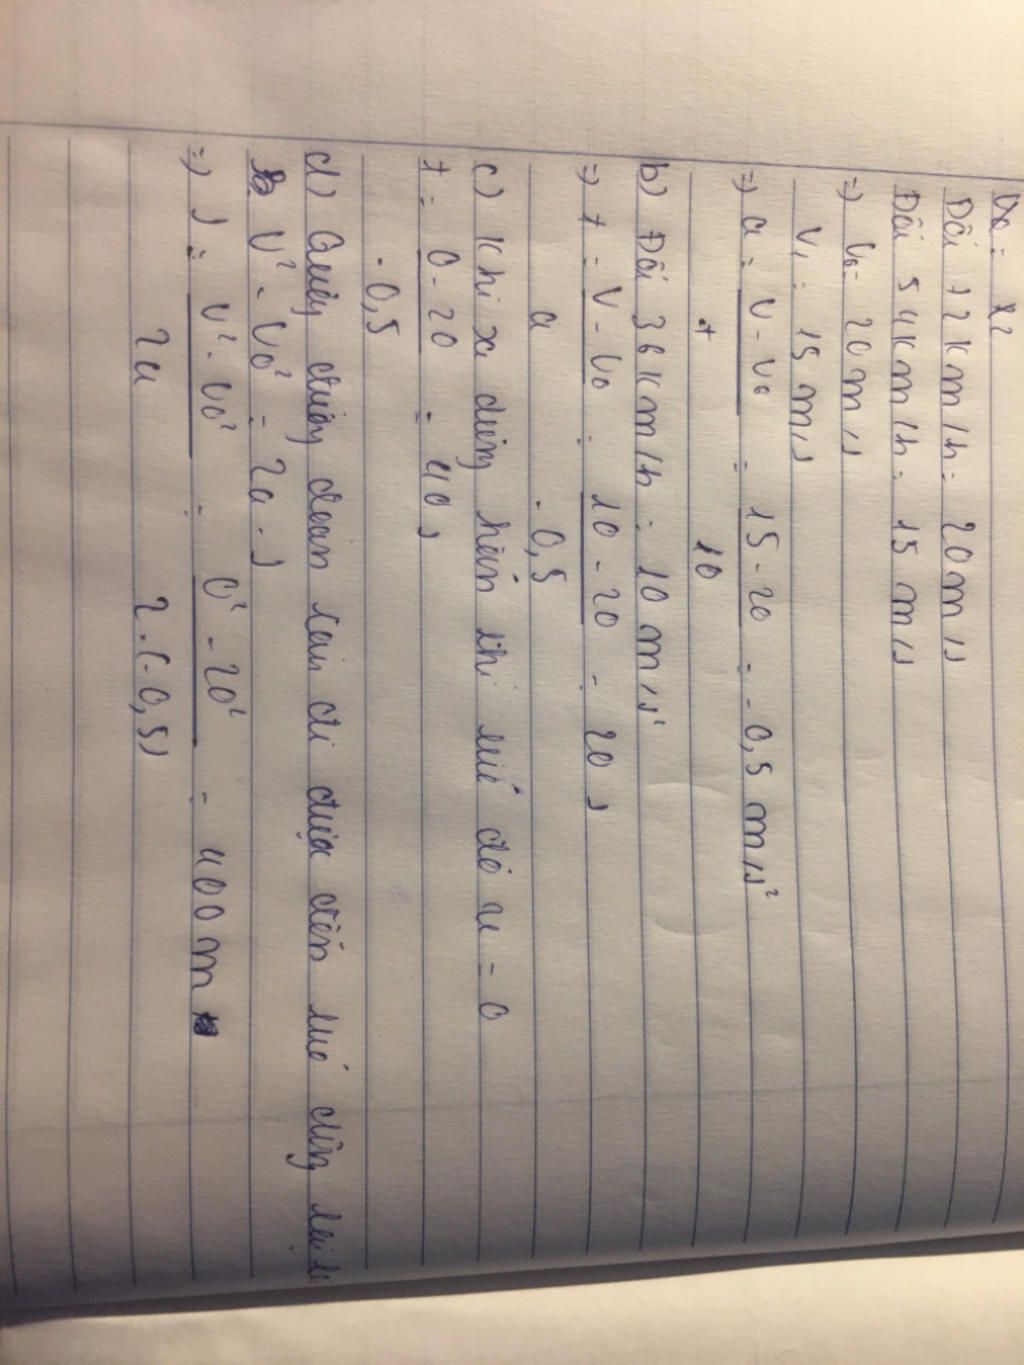 Đổi 72 km/h = 20 m/s
Đổi 54 km/h = 15 m/s
=> V0 = 20 m/s
V1 = 15 m/s
=> a = (V - V0)/t = (15 - 20)/10 = -0,5 m/s²
b) Đổi 36 km/h = 10 m/s
=> t = (V - V0)/a = (10 - 20)/-0,5 = 20 s
c) Khi xe dừng hẳn thì lúc đó v = 0
t = (0 - 20)/-0,5 = 40 s
d) Quãng đường đoàn tàu đi được đến lúc dừng lại là
V² - V0² = 2a.s
=> s = (V² - V0²)/2a = (0² - 20²)/2.(-0,5) = 400 m